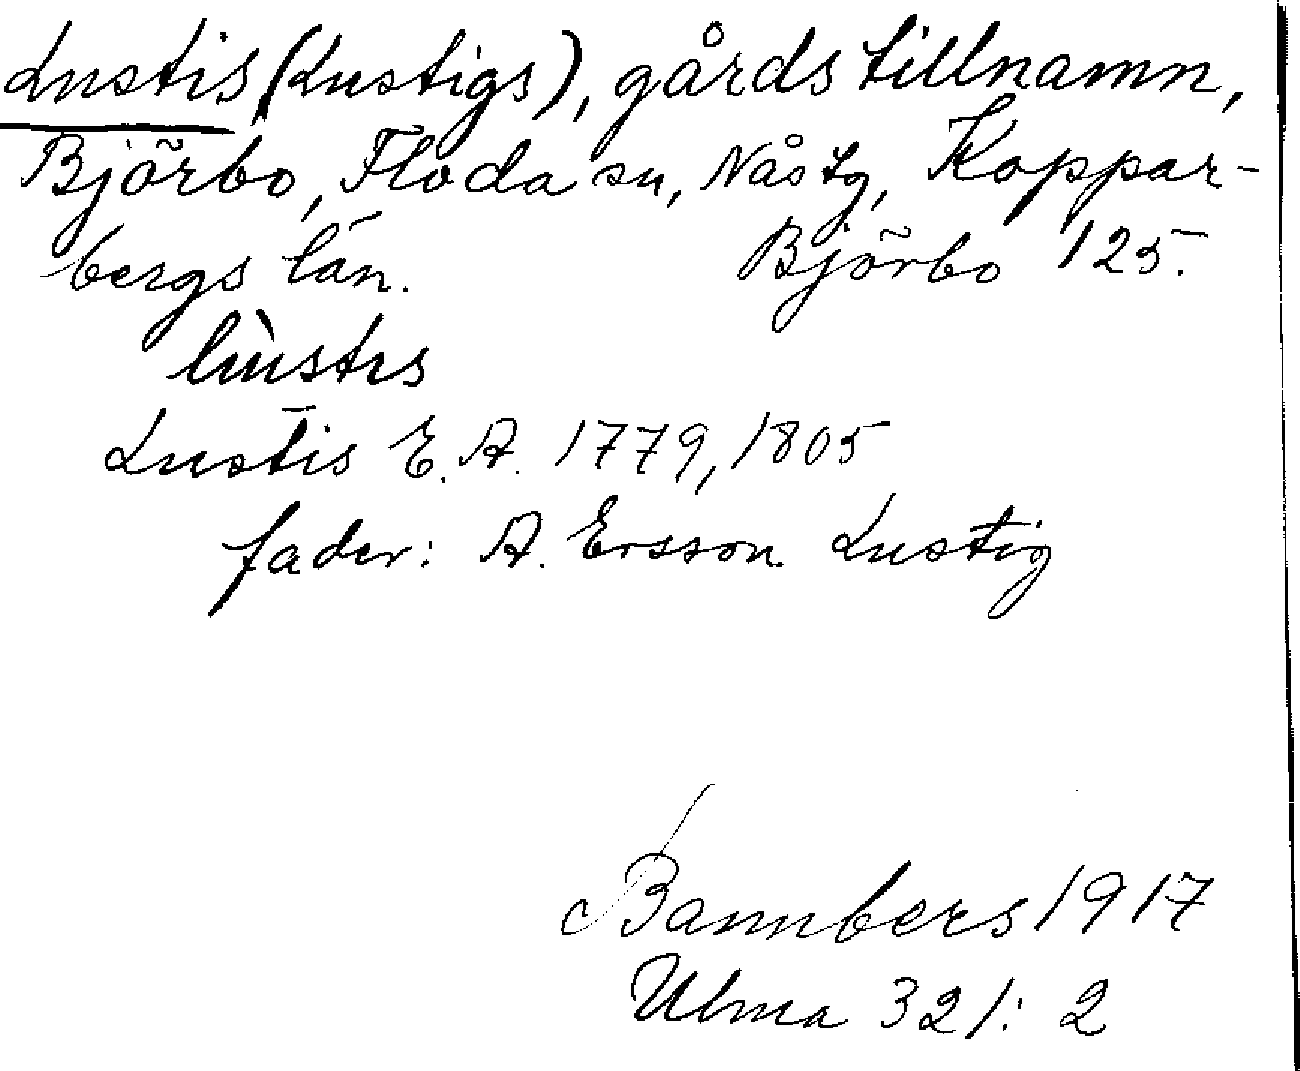 Lustis (Lustigs), gårdstillnamn,
Björbo, Floda sn, Nås tg, Koppar-
bergs län. Björbo 125.
lùstıs
Lustis E. A. 1779, 1805
fader: A. Ersson Lustig
Bannbers 1917
Ulma 321:2